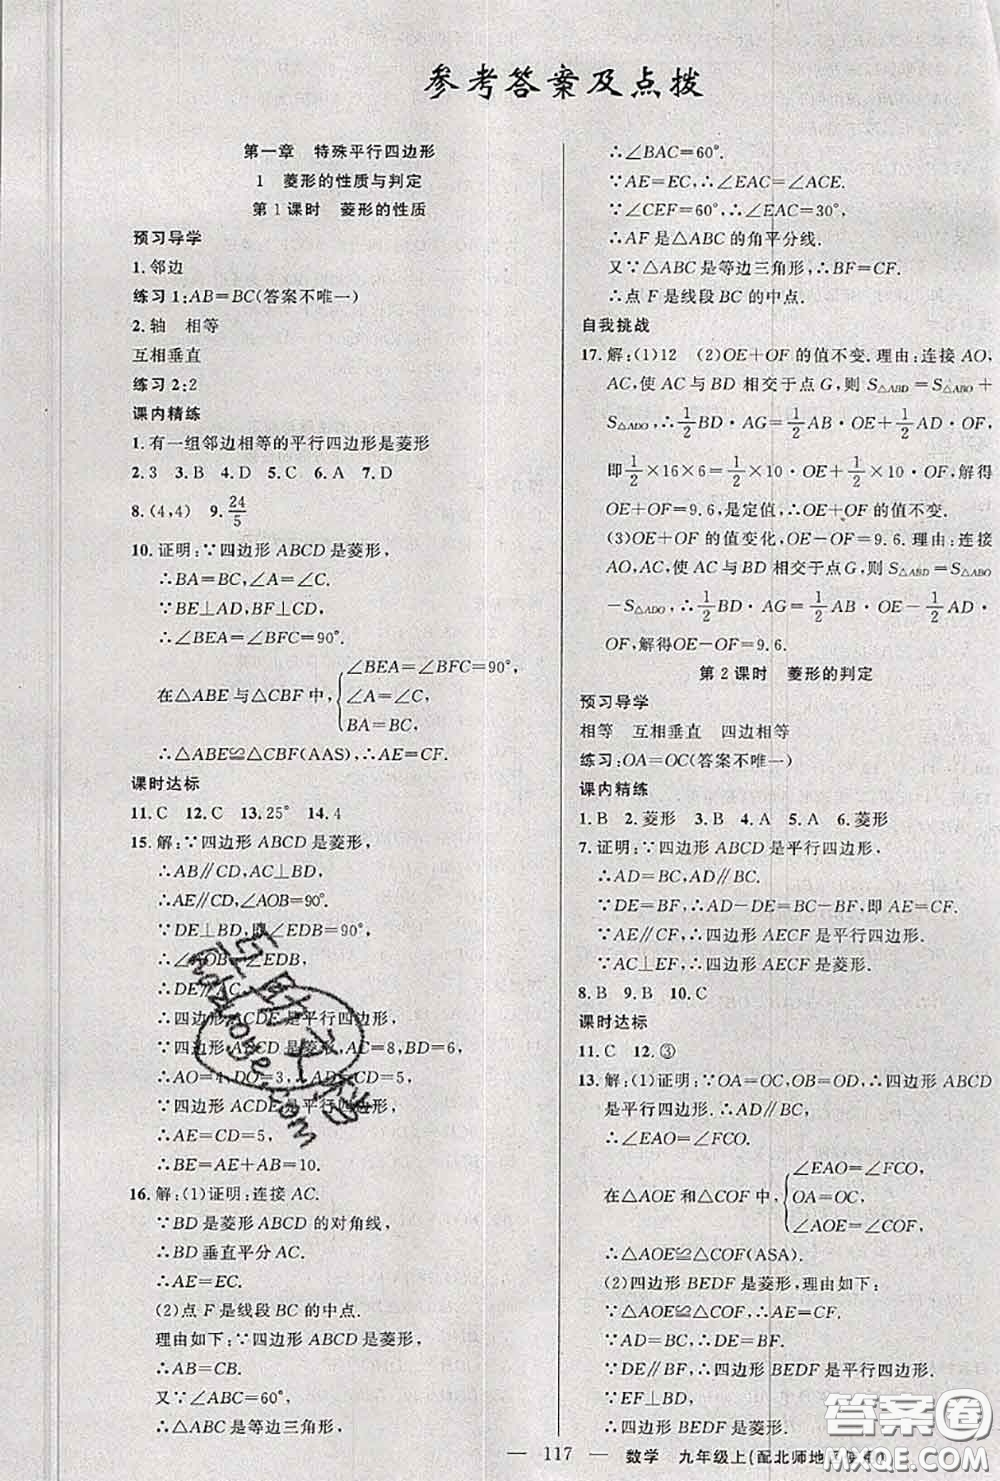 参考答案及点拨
第一章 特殊平行四边形
1 菱形的性质与判定
第1课时 菱形的性质
预习导学
1.邻边
练习1:AB=BC(答案不唯一)
2.轴 相等
互相垂直
练习2:2
课内精练
1.有一组邻边相等的平行四边形是菱形
2.3 3.B 4.D 5.C 6.A 7.D
8.(4,4) 9.24/5
10.证明:∵四边形ABCD是菱形,
∴BA=BC,∠A=∠C.
∵BE⊥AD,BF⊥CD,
∴∠BEA=∠BFC=90°.
在△ABE与△CBF中,{∠BEA=∠BFC=90°,
∠A=∠C,
BA=BC,
∴△ABE≌△CBF(AAS),∴AE=CF.
课时达标
11.C 12.C 13.25° 14.4
15.解:∵四边形ABCD是菱形,
∴AB∥CD,AC⊥BD,
∴AE∥CD,∠AOB=90°.
∵DE⊥BD,即∠EDB=90°,
∴∠AOB=∠EDB,
∴DE∥AC,
∴四边形ACDE是平行四边形,
∵四边形ABCD是菱形,AC=8,BD=6,
∴AO=4,DO=3,∴AD=CD=5.
∵四边形ACDE是平行四边形,
∴AE=CD=5,
∴BE=AE+AB=10.
16.解:(1)证明:连接AC.
∵BD是菱形ABCD的对角线,
∴BD垂直平分AC.
∴AE=EC.
(2)点F是线段BC的中点.
理由如下:∵四边形ABCD是菱形,
∴AB=CB.
又∵∠ABC=60°,
∴△ABC是等边三角形,
∴∠BAC=60°.
∵AE=EC,∴∠EAC=∠ACE.
∵∠CEF=60°,∴∠EAC=30°,
∴AF是△ABC的角平分线.
又∵△ABC是等边三角形,∴BF=CF.
∴点F是线段BC的中点.
自我挑战
17.解:(1)12 (2)OE+OF的值不变.理由:连接AO,
AC,使AC与BD相交于点G,则S△ABD=S△ABO+
S△ADO,∴1/2BD·AG=1/2AB·OE+1/2AD·OF,
即1/2×16×6=1/2×10·OE+1/2×10·OF,解得
OE+OF=9.6,是定值,∴OE+OF的值不变.
(3)OE+OF的值变化,OE-OF=9.6.理由:连接
AO,AC,使AC与BD相交于点G,则S△ABD=S△ABO
-S△ADO,∴1/2BD·AG=1/2AB·OE-1/2AD·
OF,解得OE-OF=9.6.
第2课时 菱形的判定
预习导学
相等 互相垂直 四边相等
练习:OA=OC(答案不唯一)
课内精练
1.B 2.菱形 3.B 4.A 5.A 6.菱形
7.证明:∵四边形ABCD是平行四边形,
∴AD=BC,AD∥BC.
∵DE=BF,∴AD-DE=BC-BF,即AE=CF.
∵AE∥CF,∴四边形AECF是平行四边形.
∵AC⊥EF,∴四边形AECF是菱形.
8.B 9.B 10.C
课时达标
11.C 12.③
13.解:(1)证明:∵OA=OC,OB=OD,∴四边形ABCD
是平行四边形.∴AD∥BC,
∴∠EAO=∠FCO.
在△AOE和△COF中,{∠EAO=∠FCO,
OA=OC,
∠AOE=∠COF,
∴△AOE≌△COF(ASA).
(2)四边形BEDF是菱形,理由如下:
∵△AOE≌△COF,∴AE=CF.
∵AD=BC,∴DE=BF.
∵DE∥BF,∴四边形BEDF是平行四边形.
∵EF⊥BD,
∴四边形BEDF是菱形.
互助文档
hdzuoye.com
答案圈
— 117 — 数学 九年级上(配北师地